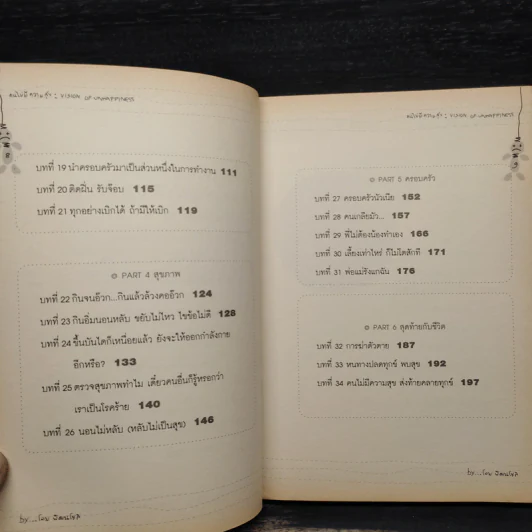 บทที่ 19 นำครอบครัวมาเป็นส่วนหนึ่งในการทำงาน 111
บทที่ 20 ติดฝิ่น รับจ๊อบ 115
บทที่ 21 ทุกอย่างเบิกได้ ถ้ามีให้เบิก 119
PART 4 สุขภาพ
บทที่ 22 กินจนอ๊วก...กินแล้วล้วงคออ๊วก 124
บทที่ 23 กินอิ่มนอนหลับ ขยับไม่ไหว ไขข้อไม่ดี 128
บทที่ 24 ขึ้นบันไดก็เหนื่อยแล้ว ยังจะให้ออกกำลังกาย
อีกหรือ? 133
บทที่ 25 ตรวจสุขภาพทำไม เดี๋ยวคนอื่นก็รู้หรอกว่า
เราเป็นโรคร้าย 140
บทที่ 26 นอนไม่หลับ (หลับไม่เป็นสุข) 146
PART 5 ครอบครัว
บทที่ 27 ครอบครัวนัวเนีย 152
บทที่ 28 คนเกลียมัว... 157
บทที่ 29 พี่ไม่ต้องน้องทำเอง 166
บทที่ 30 เลี้ยงเท่าไหร่ ก็ไม่โตสักที 171
บทที่ 31 พ่อแม่รังแกฉัน 176
PART 6 สุดท้ายกับชีวิต
บทที่ 32 การฆ่าตัวตาย 187
บทที่ 33 หนทางปลดทุกข์ พบสุข 192
บทที่ 34 คนไม่มีความสุข ส่งท้ายคลายทุกข์ 197